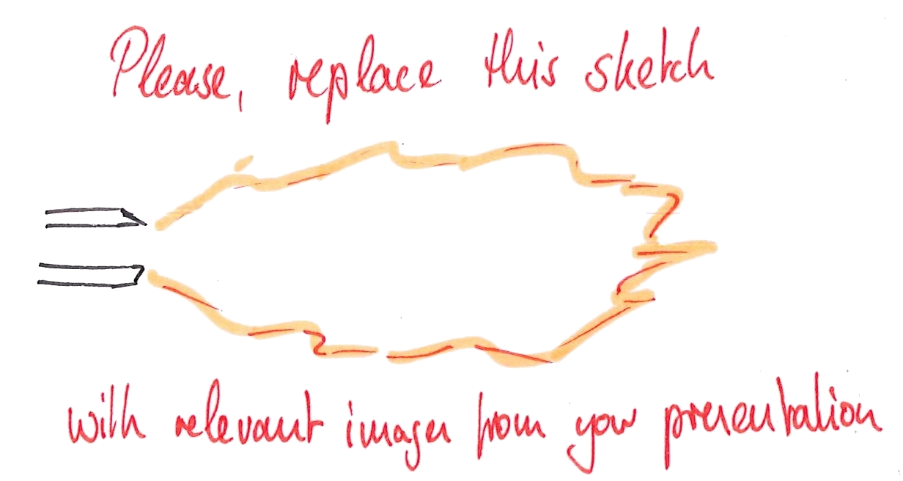 Please, replace this sketch
with relevant images from your presentation